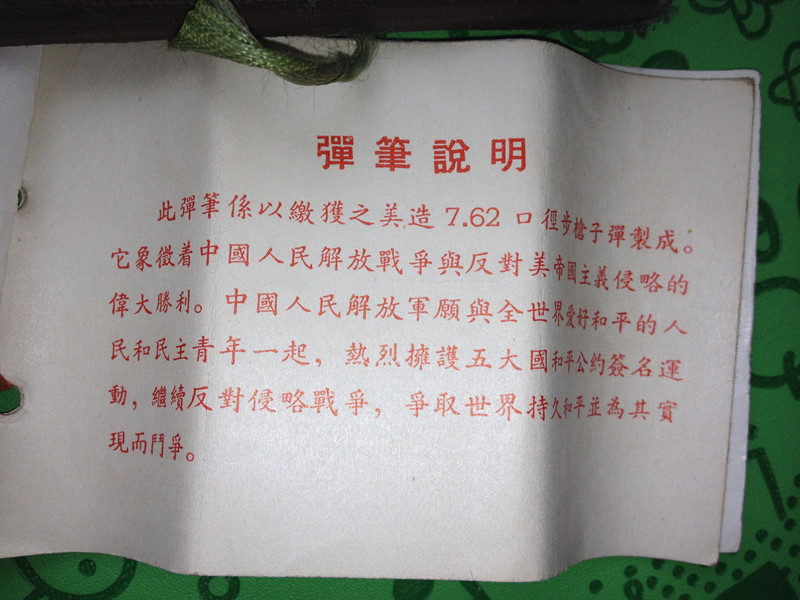 彈筆說明
此彈筆係以繳獲之美造7.62口徑步槍子彈製成。
它象徵着中國人民解放戰爭與反對美帝國主義侵略的
偉大勝利。中國人民解放軍願與全世界愛好和平的人
民和民主青年一起，熱烈擁護五大國和平公約簽名運
動，繼續反對侵略戰爭，爭取世界持久和平並為其實
現而鬥爭。